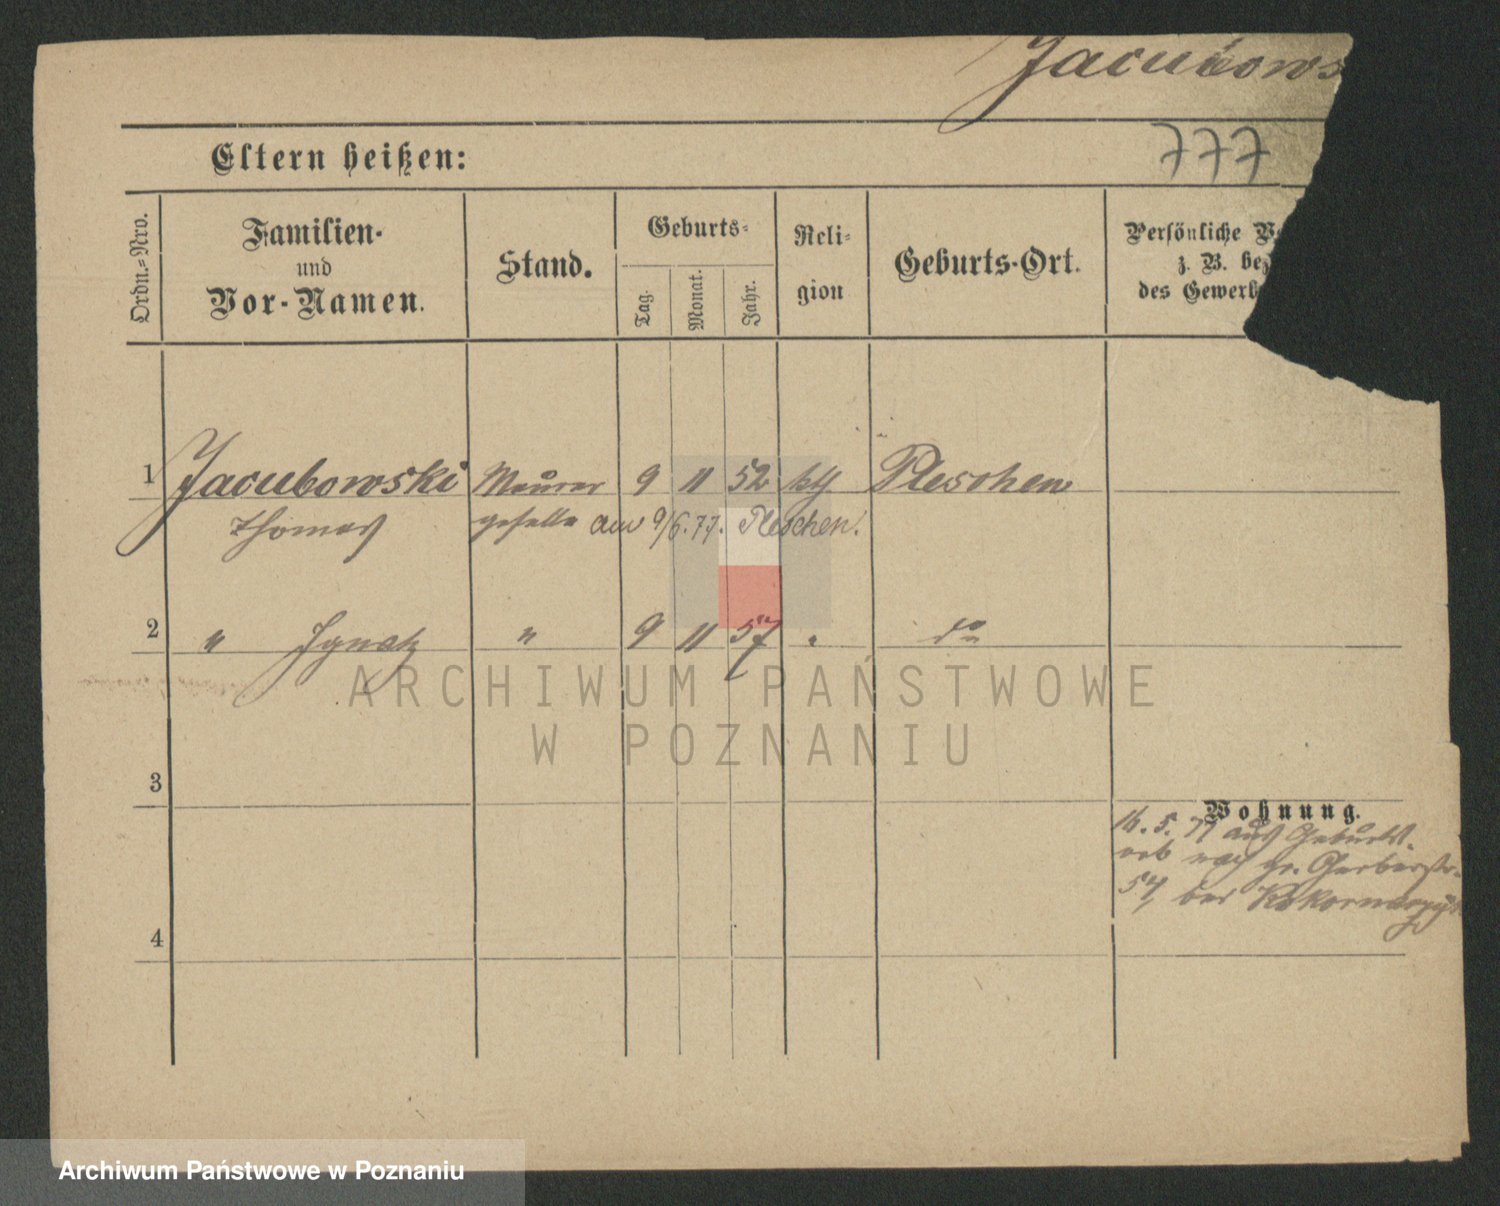 Jacubows
777
Eltern heißen:
Ordn.-Nro.
Familien-
und
Vor-Namen.
Stand.
Geburts-
Tag.
Monat.
Jahr.
Reli-
gion
Geburts-Ort.
Persönliche
z. B.
des Gewerb
1 Jacubowski Maurer 9 11 52 kth Pleschen
Thomas geselle am 9/6.77. Pleschen.
2 " Ignatz " 9 11 57 " do
3
Wohnung.
16. 5. 77 aus Geburts-
nach gr. Gerberstr.
bei
4
ARCHIWUM PAŃSTWOWE
W POZNANIU
Archiwum Państwowe w Poznaniu